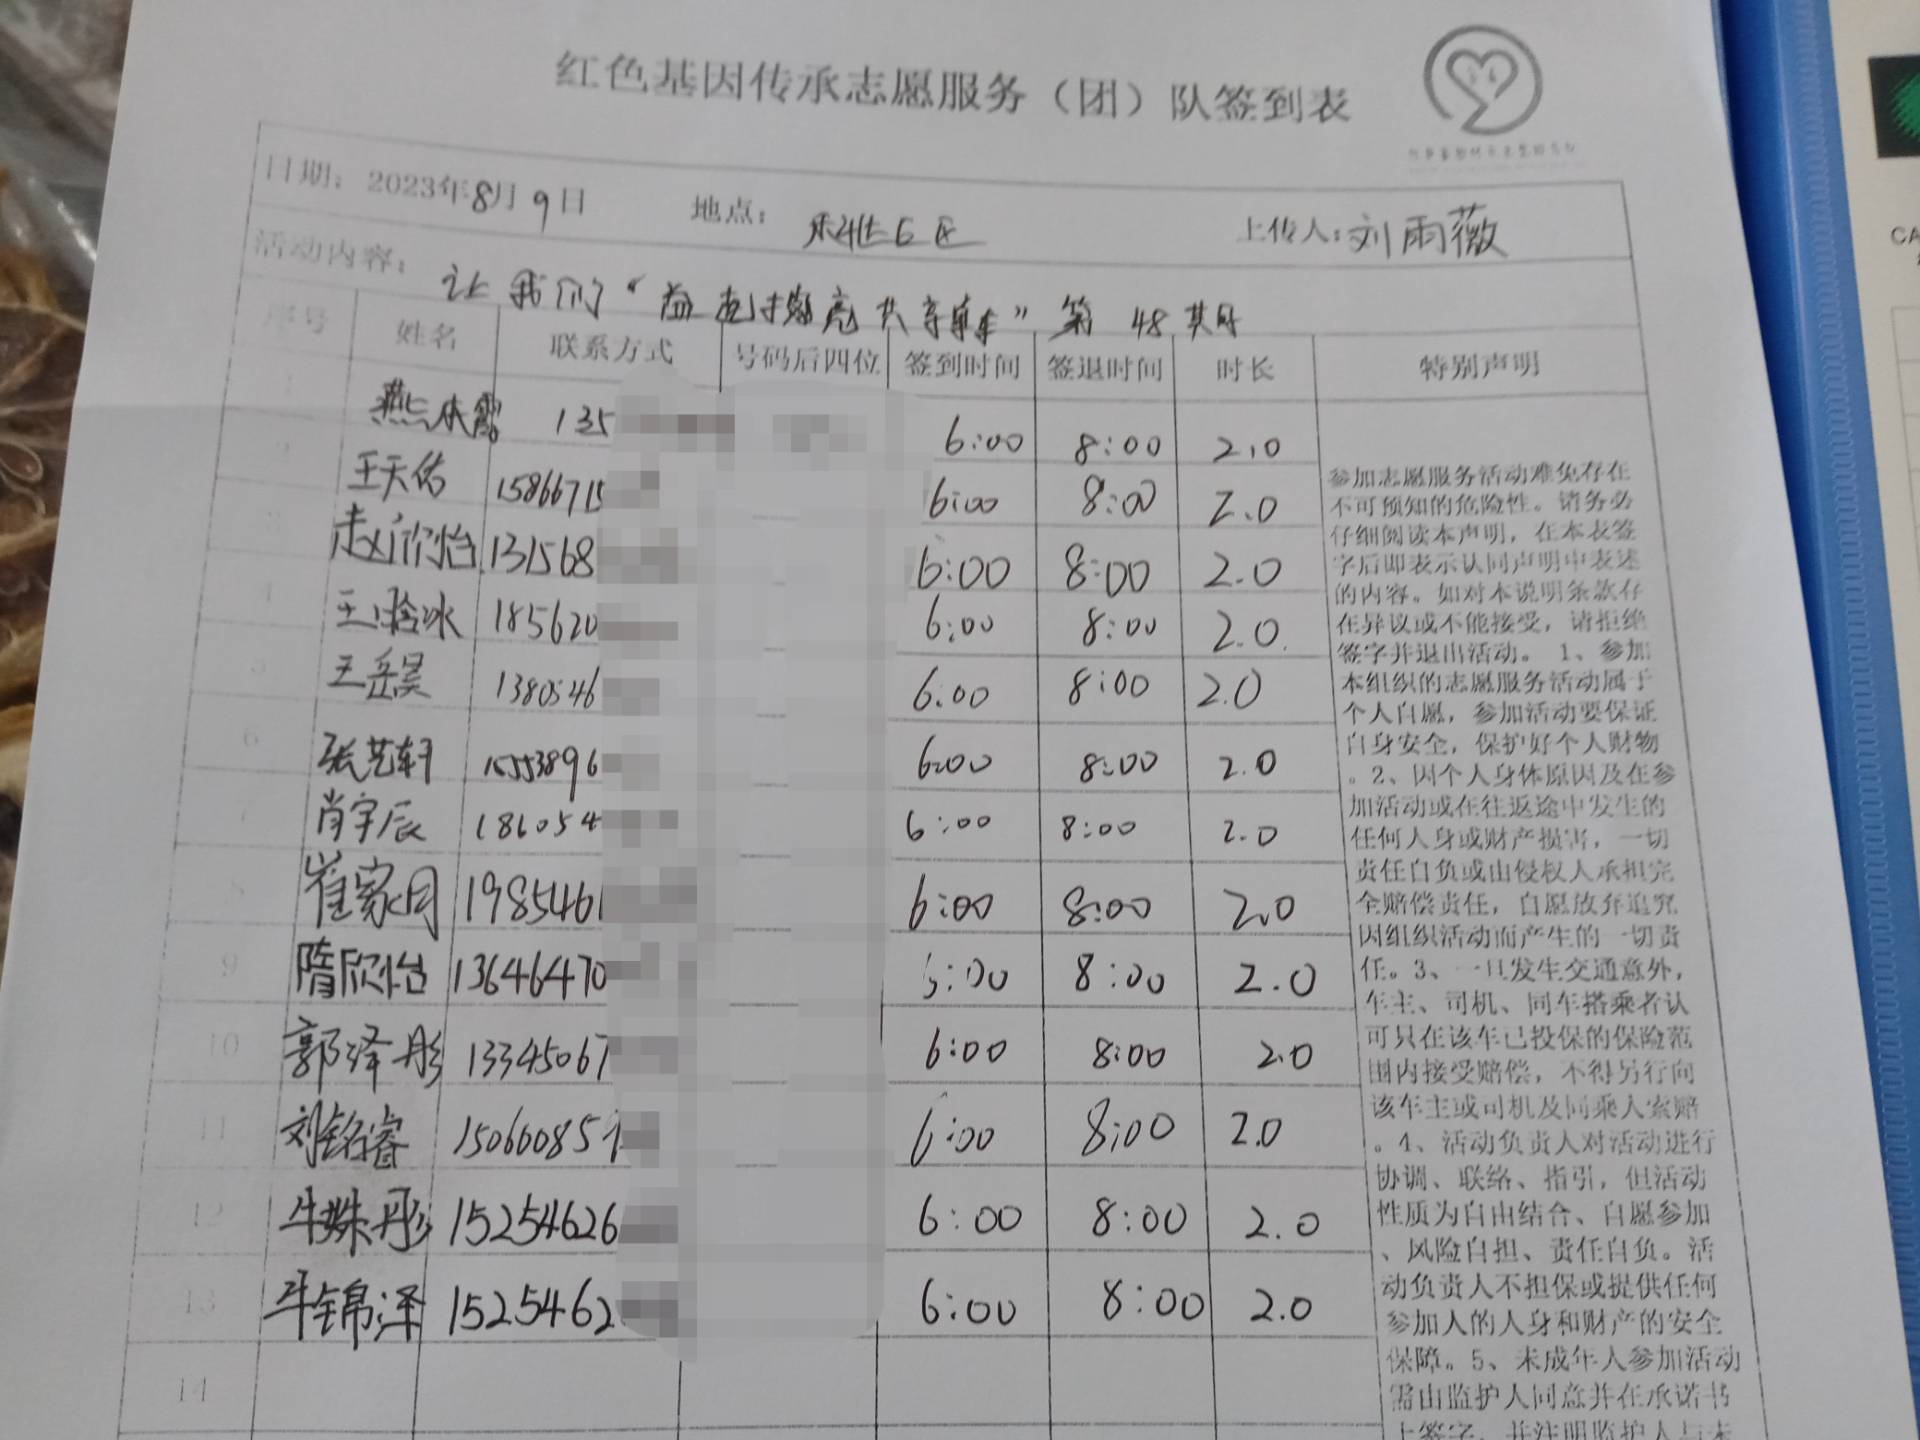 红色基因传承志愿服务（团）队签到表
日期：2023年8月9日 地点： 上传人：刘雨薇
活动内容：让我们“益起擦亮共享单车”第48期
序号 姓名 联系方式 号码后四位 签到时间 签退时间 时长 特别声明
1 135 6:00 8:00 2.0
2 王天佑 15866715 6:00 8:00 2.0
3 赵欣怡 131568 6:00 8:00 2.0
4 王晗冰 185620 6:00 8:00 2.0
5 王岳昊 1380546 6:00 8:00 2.0
6 张艺轩 15553896 6:00 8:00 2.0
7 肖宇辰 186054 6:00 8:00 2.0
8 崔家月 1985461 6:00 8:00 2.0
9 隋欣怡 13646470 6:00 8:00 2.0
10 郭泽彤 13345067 6:00 8:00 2.0
11 刘铭睿 150600851 6:00 8:00 2.0
12 牛姝彤 15254626 6:00 8:00 2.0
13 牛锦泽 1525462 6:00 8:00 2.0
14
参加志愿服务活动难免存在
不可预知的危险性。请务必
仔细阅读本声明，在本表签
字后即表示认同声明中表述
的内容。如对本说明条款存
在异议或不能接受，请拒绝
签字并退出活动。1、参加
本组织的志愿服务活动属于
个人自愿，参加活动要保证
自身安全，保护好个人财物
。2、因个人身体原因及在参
加活动或在往返途中发生的
任何人身或财产损害，一切
责任自负或由侵权人承担完
全赔偿责任，自愿放弃追究
因组织活动而产生的一切责
任。3、一旦发生交通意外，
车主、司机、同车搭乘者认
可只在该车已投保的保险范
围内接受赔偿，不得另行向
该车主或司机及同乘人索赔
。4、活动负责人对活动进行
协调、联络、指引，但活动
性质为自由结合、自愿参加
、风险自担、责任自负。活
动负责人不担保或提供任何
参加人的人身和财产的安全
保障。5、未成年人参加活动
需由监护人同意并在承诺书
上签字，并注明监护人与未
CA